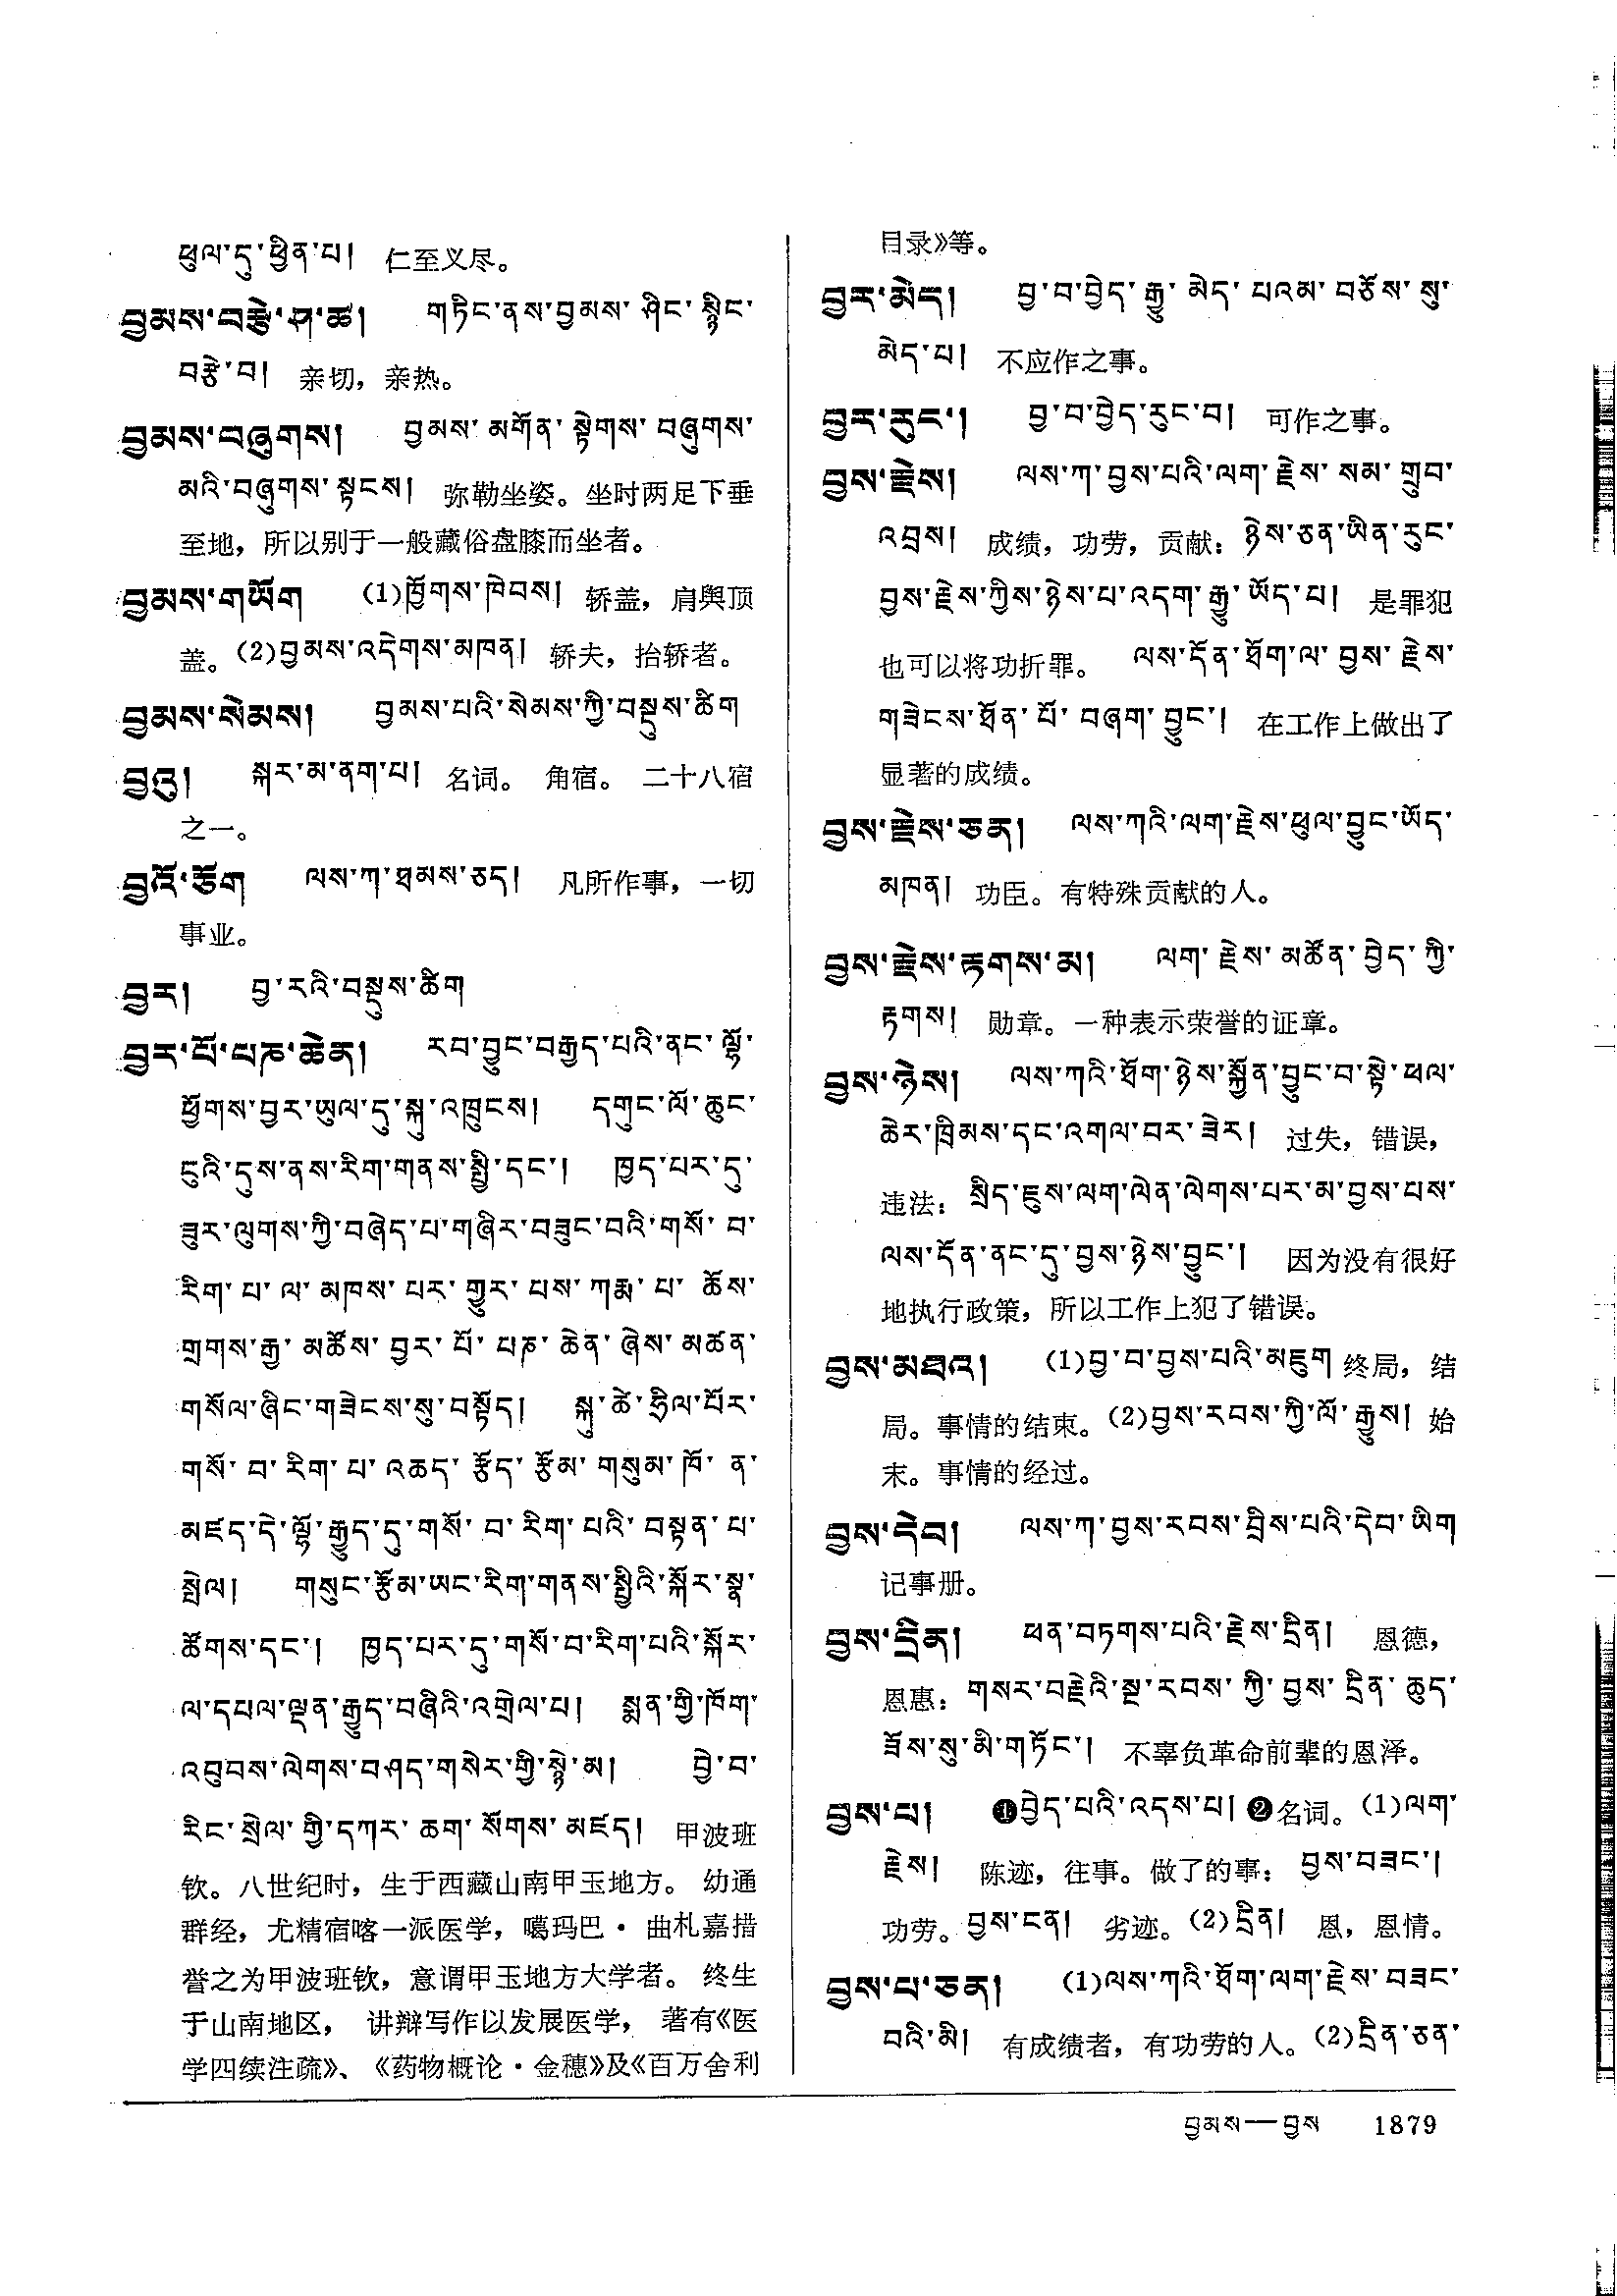 ཕུལ་དུ་ཕྱིན་པ། 仁至义尽。
བྱམས་བརྩེ་ཤ་ཚ། གཏིང་ནས་བྱམས་ཤིང་སྙིང་
བརྩེ་བ། 亲切，亲热。
བྱམས་བཞུགས། བྱམས་མགོན་སྟེགས་བཞུགས་
མའི་བཞུགས་སྟངས། 弥勒坐姿。坐时两足下垂
至地，所以别于一般藏俗盘膝而坐者。
བྱམས་གཡོག (1)ཁྱོགས་ཁེབས། 轿盖，肩舆顶
盖。(2)བྱམས་འདེགས་མཁན། 轿夫，抬轿者。
བྱམས་སེམས། བྱམས་པའི་སེམས་ཀྱི་བསྡུས་ཚིག
བྱའུ། སྐར་མ་ནག་པ། 名词。 角宿。 二十八宿
之一。
བྱའོ་ཅོག ལས་ཀ་ཐམས་ཅད། 凡所作事，一切
事业。
བྱར། བྱ་རའི་བསྡུས་ཚིག
བྱར་པོ་པཎ་ཆེན། རབ་བྱུང་བརྒྱད་པའི་ནང་ལྷོ་
ཕྱོགས་བྱར་ཡུལ་དུ་སྐུ་འཁྲུངས། དགུང་ལོ་ཆུང་
ངུའི་དུས་ནས་རིག་གནས་སྤྱི་དང་། ཁྱད་པར་དུ་
ཟུར་ལུགས་ཀྱི་བཞེད་པ་གཞིར་བཟུང་བའི་གསོ་བ་
རིག་པ་ལ་མཁས་པར་གྱུར་པས་ཀརྨ་པ་ཆོས་
གྲགས་རྒྱ་མཚོས་བྱར་པོ་པཎ་ཆེན་ཞེས་མཚན་
གསོལ་ཞིང་གཟེངས་སུ་བསྟོད། སྐུ་ཚེ་ཧྲིལ་པོར་
གསོ་བ་རིག་པ་འཆད་རྩོད་རྩོམ་གསུམ་ཁོ་ན་
མཛད་དེ་ལྷོ་རྒྱུད་དུ་གསོ་བ་རིག་པའི་བསྟན་པ་
སྤེལ། གསུང་རྩོམ་ཡང་རིག་གནས་སྤྱིའི་སྐོར་སྣ་
ཚོགས་དང་། ཁྱད་པར་དུ་གསོ་བ་རིག་པའི་སྐོར་
ལ་དཔལ་ལྡན་རྒྱུད་བཞིའི་འགྲེལ་པ། སྨན་གྱི་ཁོག་
འབུབས་ལེགས་བཤད་གསེར་གྱི་སྙེ་མ། བྱེ་བ་
རིང་སྲེལ་གྱི་དཀར་ཆག་སོགས་མཛད། 甲波班
钦。八世纪时，生于西藏山南甲玉地方。 幼通
群经，尤精宿喀一派医学，噶玛巴·曲札嘉措
誉之为甲波班钦，意谓甲玉地方大学者。 终生
于山南地区， 讲辩写作以发展医学， 著有《医
学四续注疏》、《药物概论·金穗》及《百万舍利
目录》等。
བྱར་མེད། བྱ་བ་བྱེད་རྒྱུ་མེད་པའམ་བཅོས་སུ་
མེད་པ། 不应作之事。
བྱར་རུང་། བྱ་བ་བྱེད་རུང་བ། 可作之事。
བྱས་རྗེས། ལས་ཀ་བྱས་པའི་ལག་རྗེས་སམ་གྲུབ་
འབྲས། 成绩，功劳，贡献：ཉེས་ཅན་ཡིན་རུང་
བྱས་རྗེས་ཀྱིས་ཉེས་པ་འདག་རྒྱུ་ཡོད་པ། 是罪犯
也可以将功折罪。 ལས་དོན་ཐོག་ལ་བྱས་རྗེས་
གཟེངས་ཐོན་པོ་བཞག་བྱུང་། 在工作上做出了
显著的成绩。
བྱས་རྗེས་ཅན། ལས་ཀའི་ལག་རྗེས་ཕུལ་བྱུང་ཡོད་
མཁན། 功臣。有特殊贡献的人。
བྱས་རྗེས་རྟགས་མ། ལག་རྗེས་མཚོན་བྱེད་ཀྱི་
རྟགས། 勋章。一种表示荣誉的证章。
བྱས་ཉེས། ལས་ཀའི་ཐོག་ཉེས་སྐྱོན་བྱུང་བ་སྟེ་ཕལ་
ཆེར་ཁྲིམས་དང་འགལ་བར་ཟེར། 过失，错误，
违法：སྲིད་ཇུས་ལག་ལེན་ལེགས་པར་མ་བྱས་པས་
ལས་དོན་ནང་དུ་བྱས་ཉེས་བྱུང་། 因为没有很好
地执行政策，所以工作上犯了错误。
བྱས་མཐའ། (1)བྱ་བ་བྱས་པའི་མཇུག 终局，结
局。事情的结束。(2)བྱས་རབས་ཀྱི་ལོ་རྒྱུས། 始
末。事情的经过。
བྱས་དེབ། ལས་ཀ་བྱས་རབས་བྲིས་པའི་དེབ་ཡིག
记事册。
བྱས་དྲིན། ཕན་བཏགས་པའི་རྗེས་དྲིན། 恩德，
恩惠：གསར་བརྗེའི་སྔ་རབས་ཀྱི་བྱས་དྲིན་ཆུད་
ཟོས་སུ་མི་གཏོང་། 不辜负革命前辈的恩泽。
བྱས་པ། ❶བྱེད་པའི་འདས་པ། ❷名词。(1)ལག་
རྗེས། 陈迹，往事。做了的事：བྱས་བཟང་།
功劳。བྱས་ངན། 劣迹。(2)དྲིན། 恩，恩情。
བྱས་པ་ཅན། (1)ལས་ཀའི་ཐོག་ལག་རྗེས་བཟང་
བའི་མི། 有成绩者，有功劳的人。(2)དྲིན་ཅན་
བྱམས—བྱས 1879